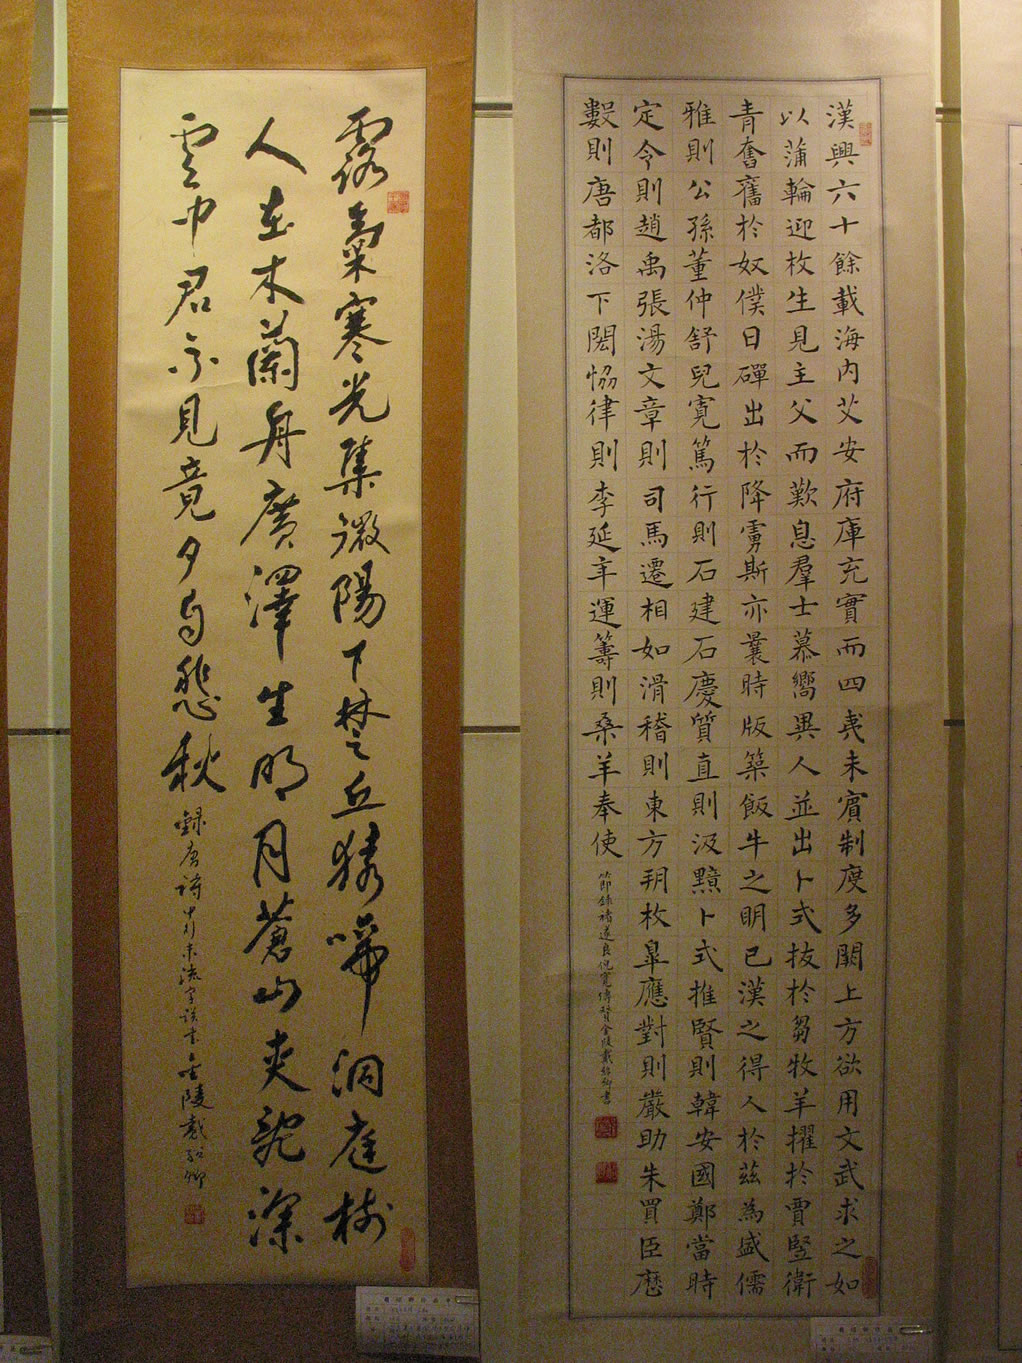 漢興六十餘載海內艾安府庫充實而四夷未賓制度多闕上方欲用文武求之如
以蒲輪迎枚生見主父而歎息羣士慕嚮異人並出卜式拔於芻牧羊擢於賈豎衛
青奮舊於奴僕日磾出於降虜斯亦曩時版築飯牛之明已漢之得人於茲為盛儒
雅則公孫董仲舒兒寬篤行則石建石慶質直則汲黯卜式推賢則韓安國鄭當時
定令則趙禹張湯文章則司馬遷相如滑稽則東方朔枚皋應對則嚴助朱買臣歷
數則唐都洛下閎恊律則李延年運籌則桑羊奉使 節錄褚遂良倪寬傳贊金陵戴紹卿書
露氣寒光集微陽下楚丘猿啼洞庭樹
人在木蘭舟廣澤生明月蒼山夾亂深
雲中君不見竟夕自悲秋 錄唐詩 金陵戴紹卿